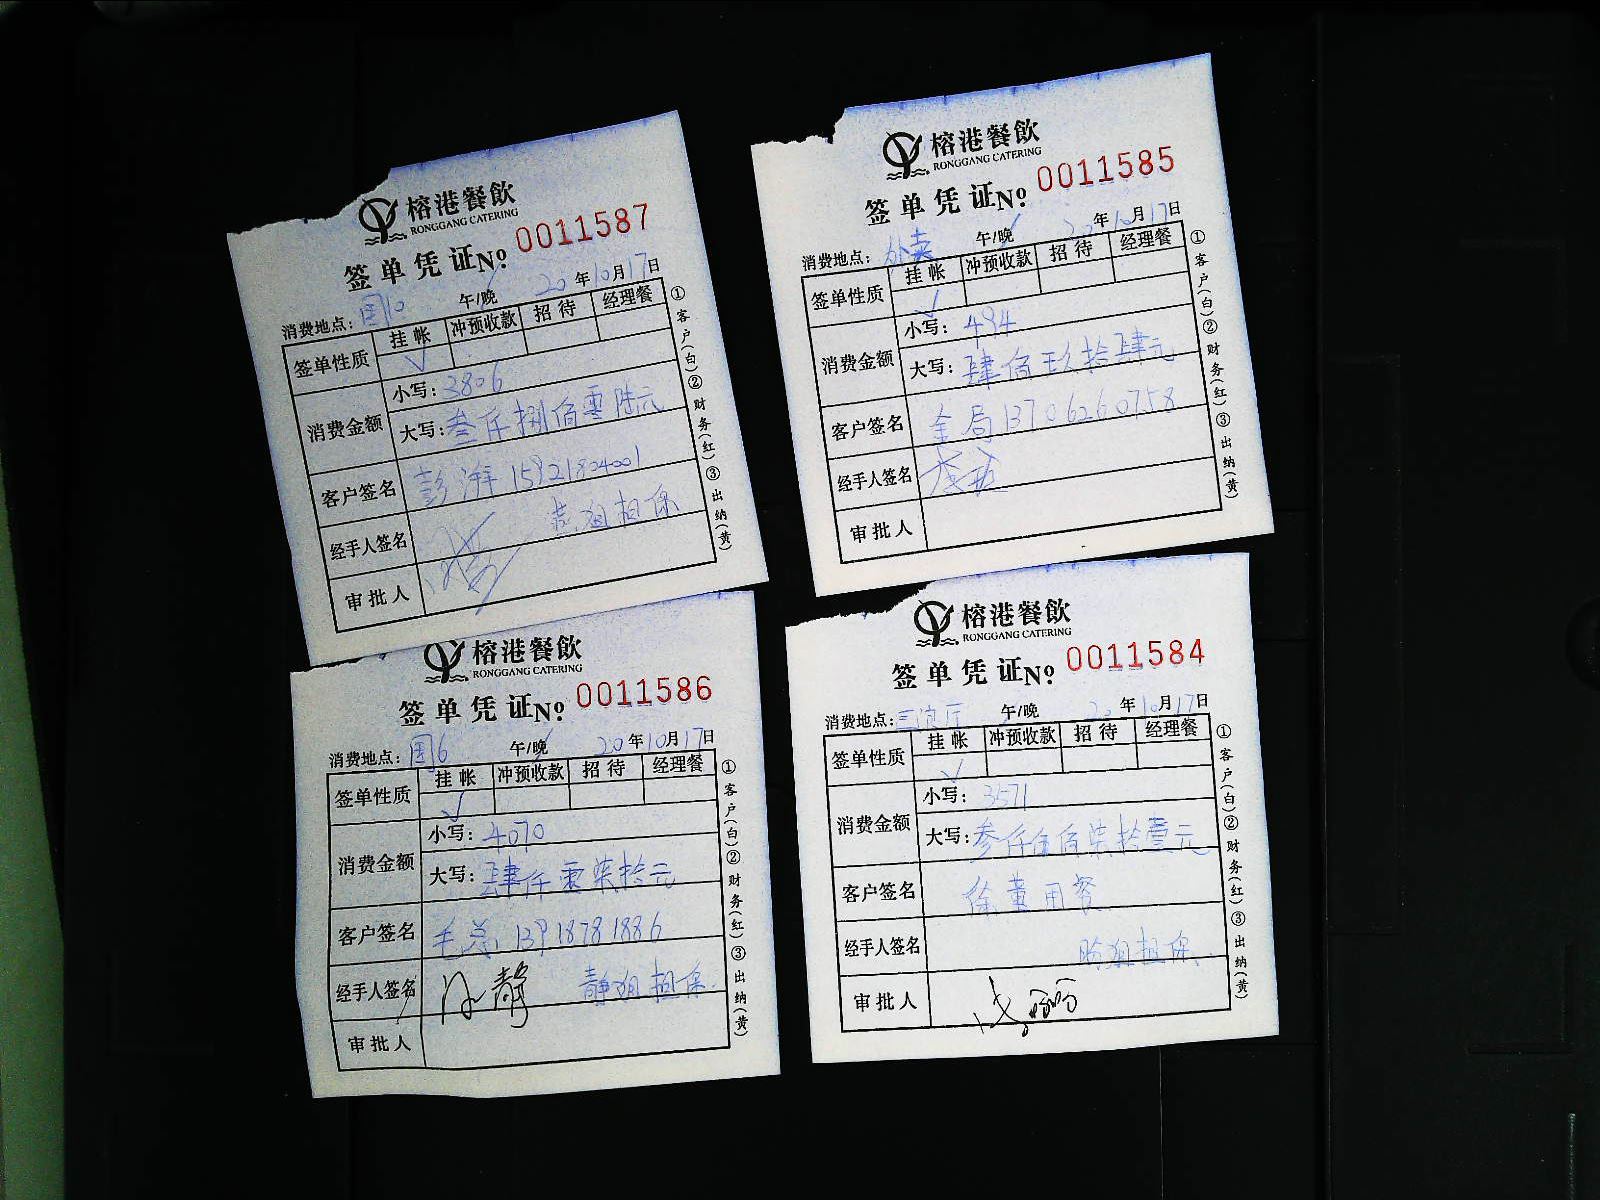 榕港餐飲
RONGGANG CATERING
签单凭证No. 0011587
消费地点：国10 午/晚 20年10月17日
签单性质 挂帐 冲预收款 招待 经理餐
✓
消费金额 小写：3806
大写：叁仟捌佰零陆元
客户签名 彭湃 15921804001
经手人签名 姐担保
审批人
①客户(白)②财务(红)③出纳(黄)
榕港餐飲
RONGGANG CATERING
签单凭证No. 0011585
消费地点：外卖 午/晚 20年10月17日
签单性质 挂帐 冲预收款 招待 经理餐
✓
消费金额 小写：494
大写：肆佰玖拾肆元
客户签名 金局13706260758
经手人签名
审批人
①客户(白)②财务(红)③出纳(黄)
榕港餐飲
RONGGANG CATERING
签单凭证No. 0011586
消费地点：国6 午/晚 20年10月17日
签单性质 挂帐 冲预收款 招待 经理餐
✓
消费金额 小写：4070
大写：肆仟零柒拾元
客户签名 毛总 13918781886
经手人签名 静 静姐担保
审批人
①客户(白)②财务(红)③出纳(黄)
榕港餐飲
RONGGANG CATERING
签单凭证No. 0011584
消费地点： 厅 午/晚 20年10月17日
签单性质 挂帐 冲预收款 招待 经理餐
✓
消费金额 小写：3571
大写：叁仟伍佰柒拾壹元
客户签名 徐董用餐
经手人签名 姐担保
审批人
①客户(白)②财务(红)③出纳(黄)